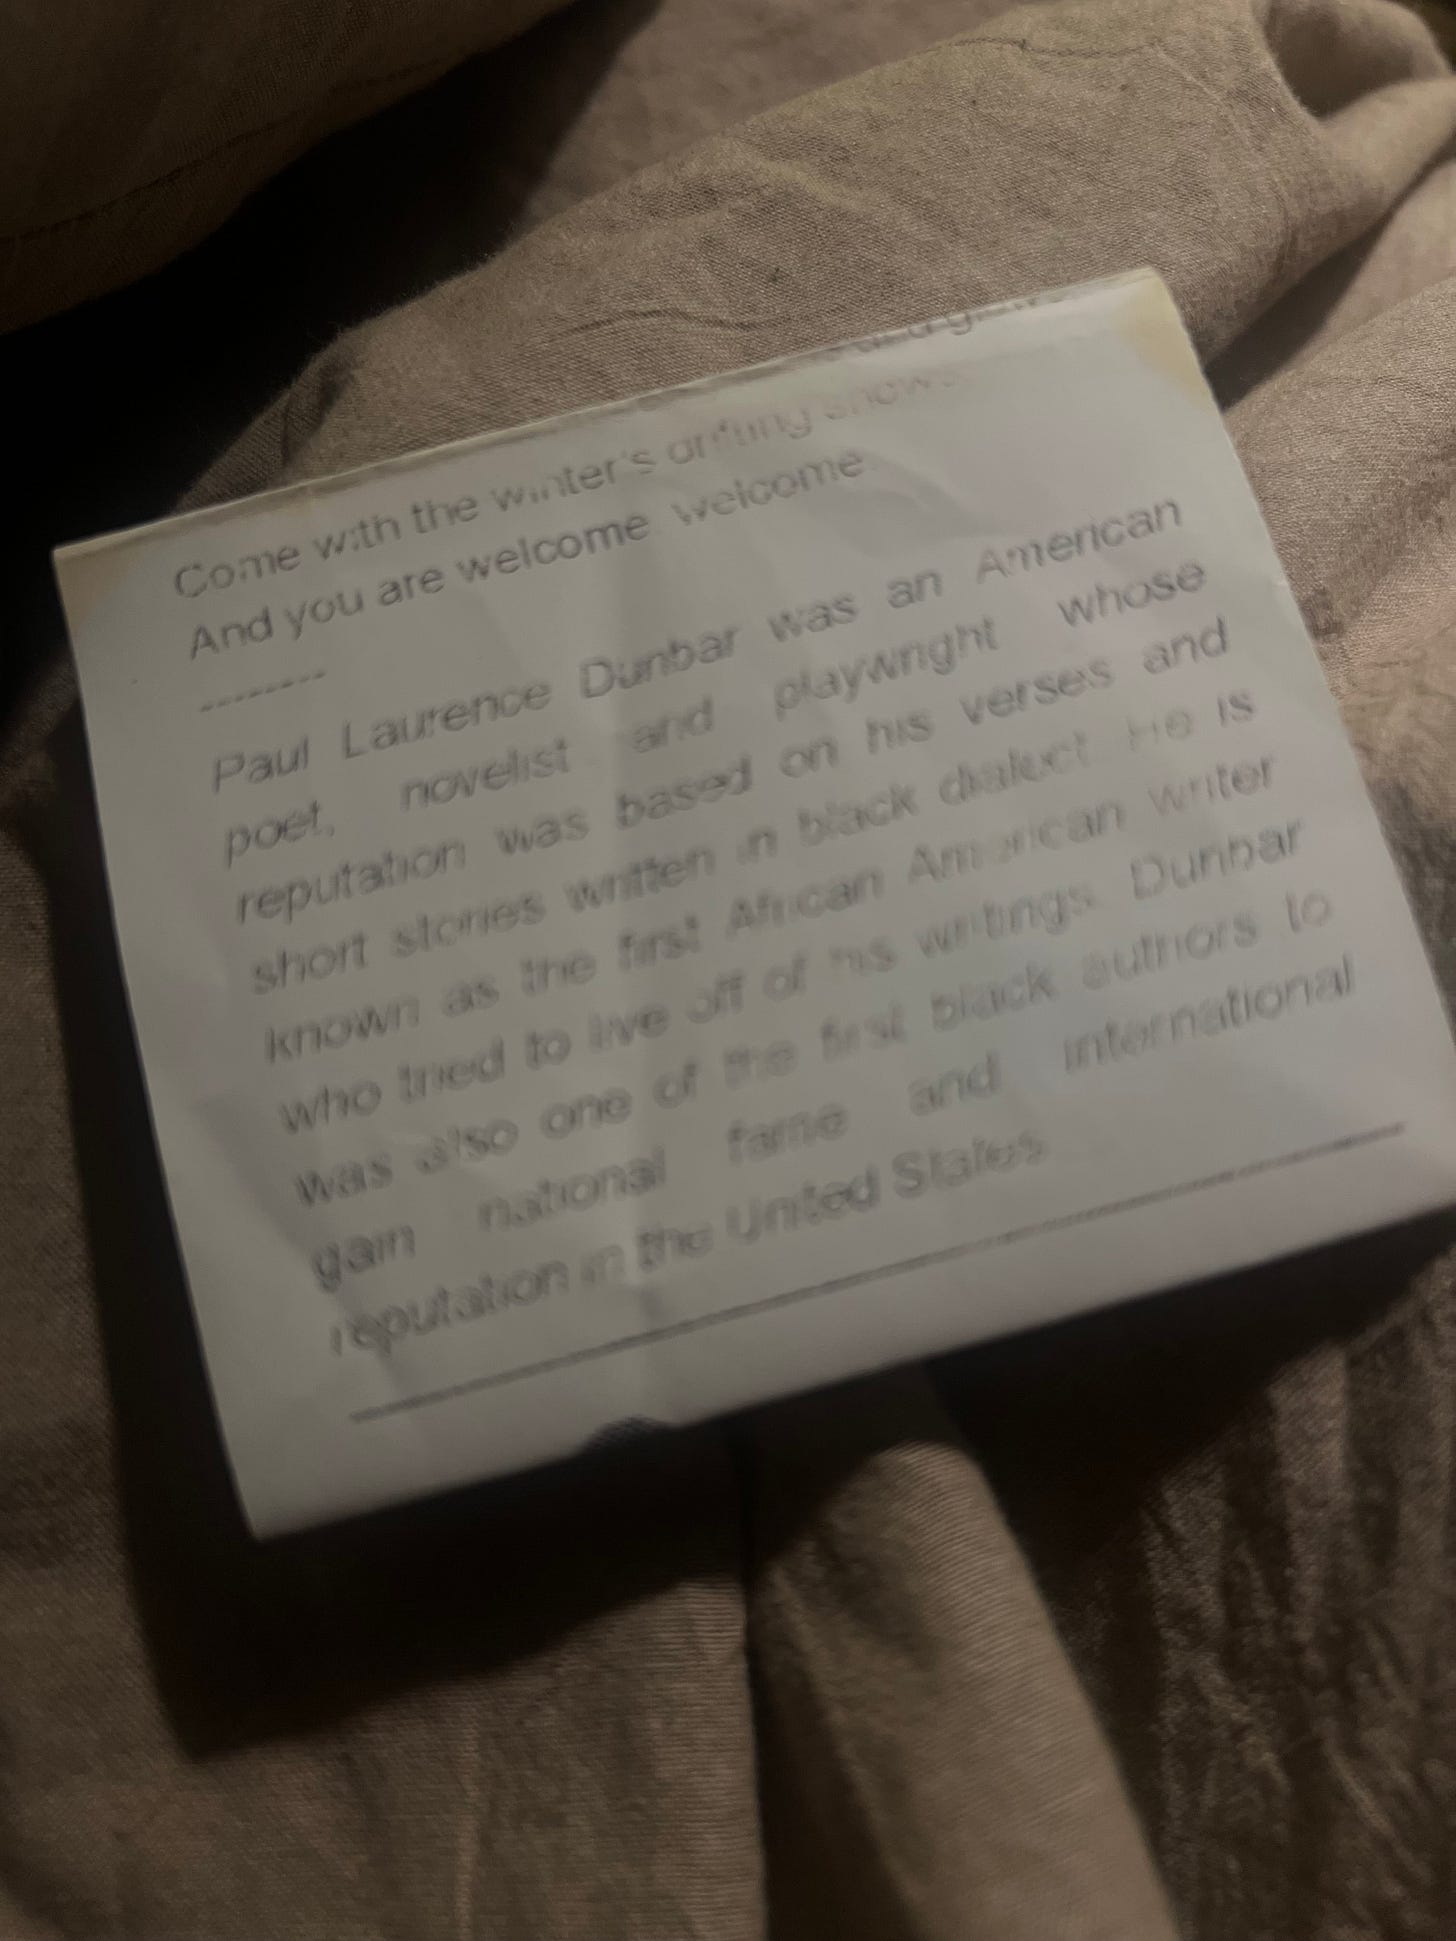 Come with the winter's drifting snows
And you are welcome welcome
--------
Paul Laurence Dunbar was an American
poet, novelist and playwright whose
reputation was based on his verses and
short stories written in black dialect. He is
known as the first African American writer
who tried to live off of his writings. Dunbar
was also one of the first black authors to
gain national fame and international
reputation in the United States